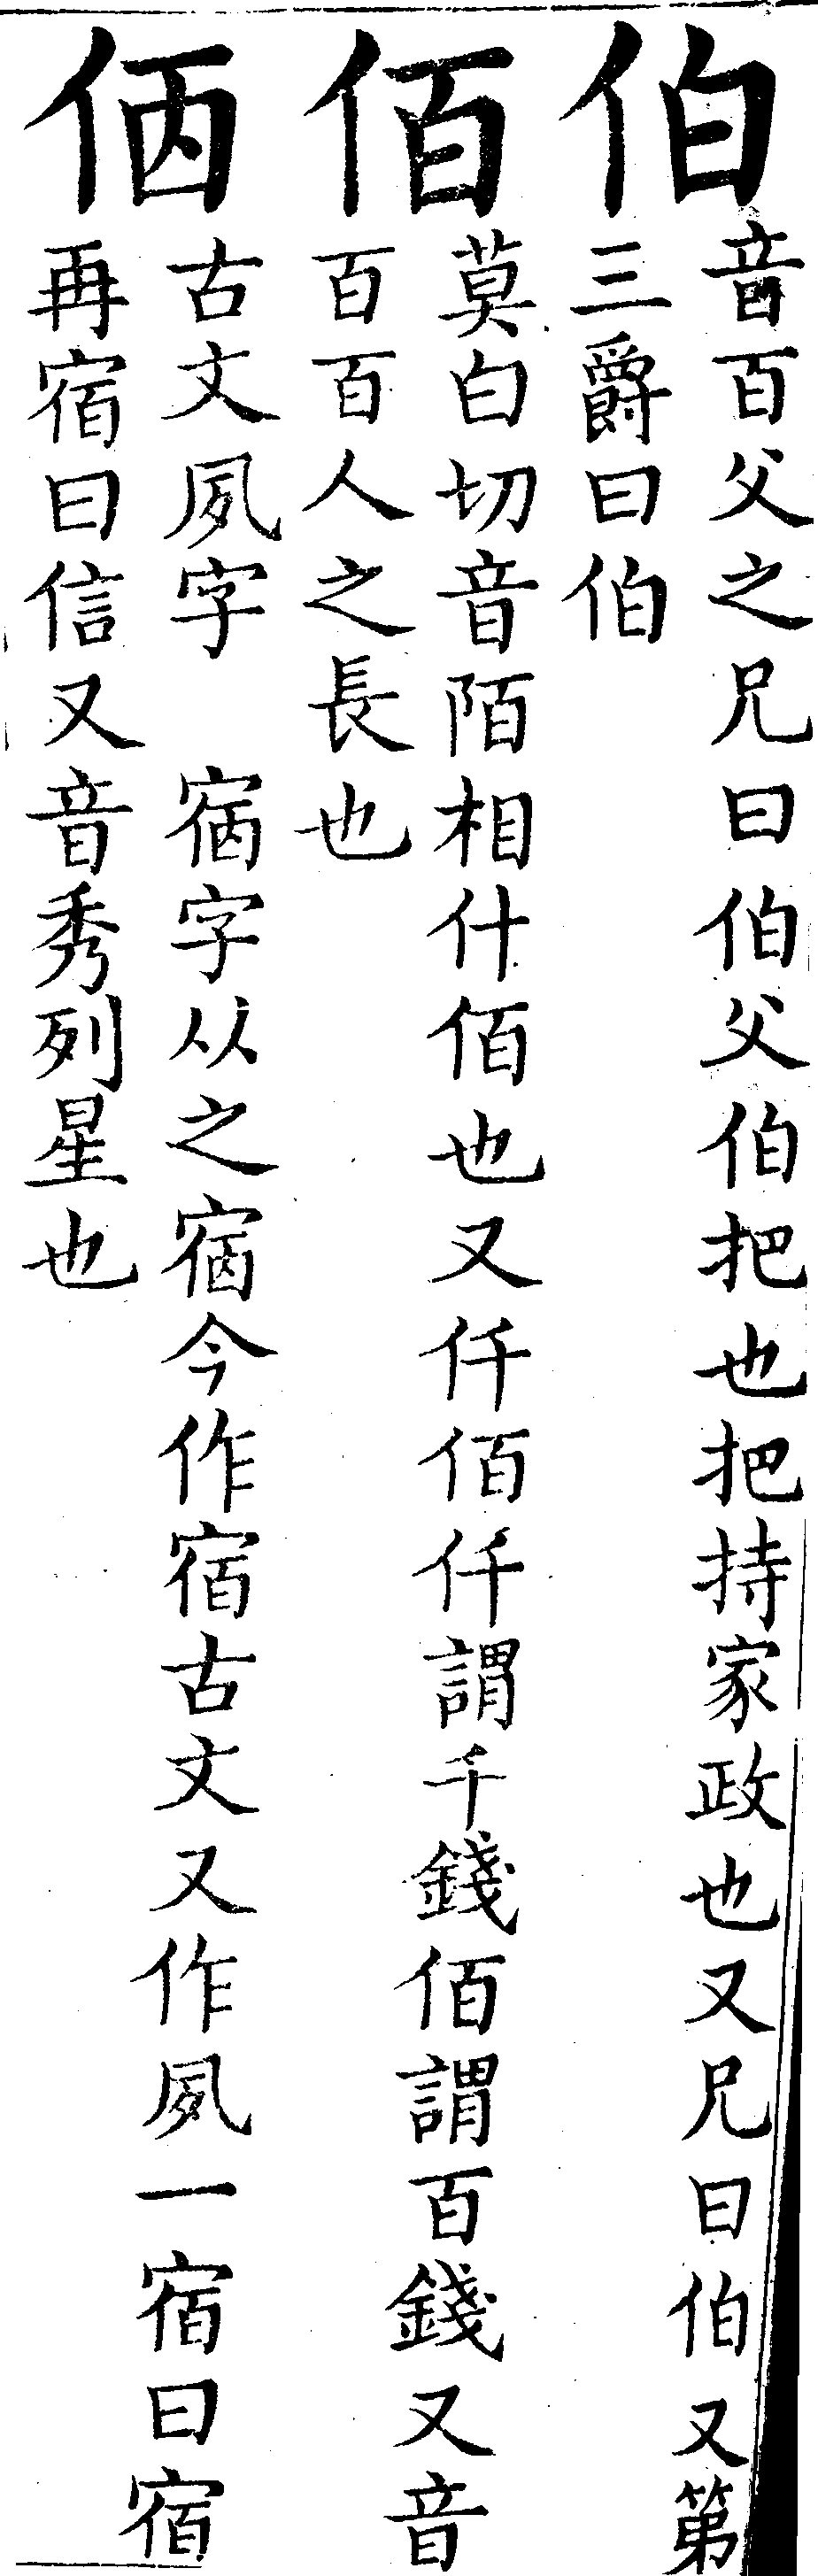 伯
音百父之兄曰伯父伯把也把持家政也又兄曰伯又第
三爵曰伯
佰
莫白切音陌相什佰也又仟佰仟謂千錢佰謂百錢又音
百百人之長也
㑄
古文夙字　宿字从之宿今作宿古文又作夙一宿曰宿
再宿曰信又音秀列星也